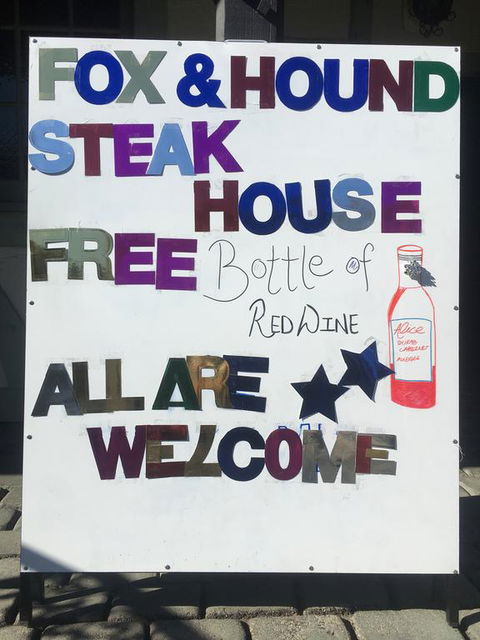 FOX & HOUND
STEAK
HOUSE
FREE Bottle of
RED WINE
Alice
ALL ARE
WELCOME